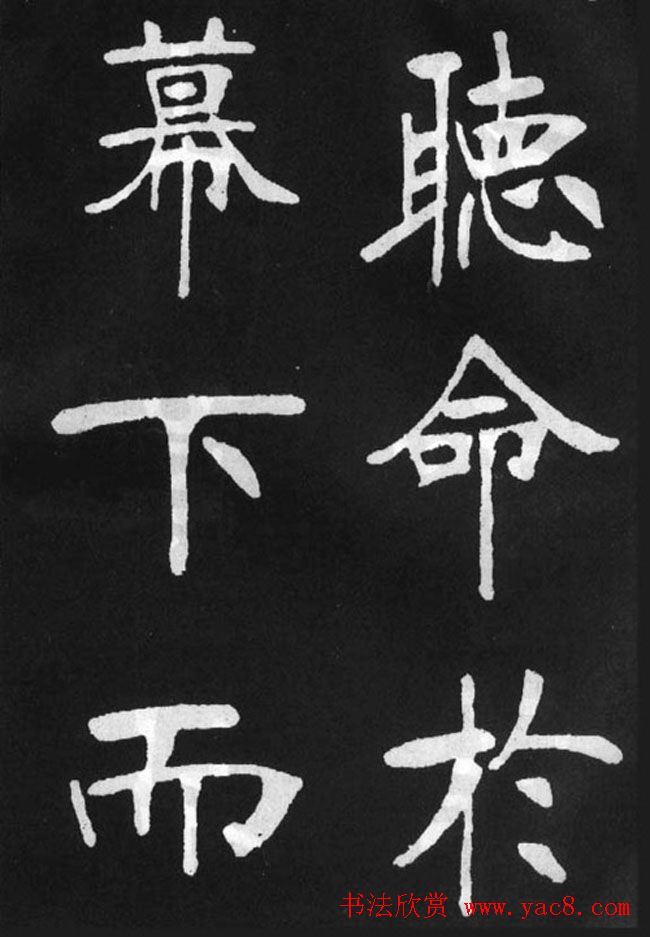 聽命於
幕下而
书法欣赏 www.yac8.com